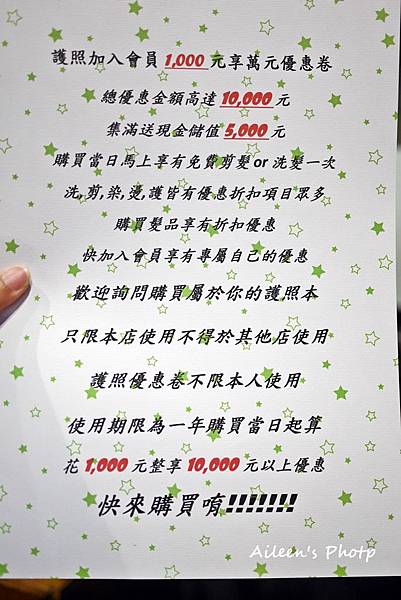 護照加入會員 1,000 元享萬元優惠卷
總優惠金額高達 10,000 元
集滿送現金儲值 5,000 元
購買當日馬上享有免費剪髮 or 洗髮一次
洗,剪,染,燙,護皆有優惠折扣項目眾多
購買髮品享有折扣優惠
快加入會員享有專屬自己的優惠
歡迎詢問購買屬於你的護照本
只限本店使用不得於其他店使用
護照優惠卷不限本人使用
使用期限為一年購買當日起算
花 1,000 元整享 10,000 元以上優惠
快來購買唷!!!!!!!
Aileen's Photp